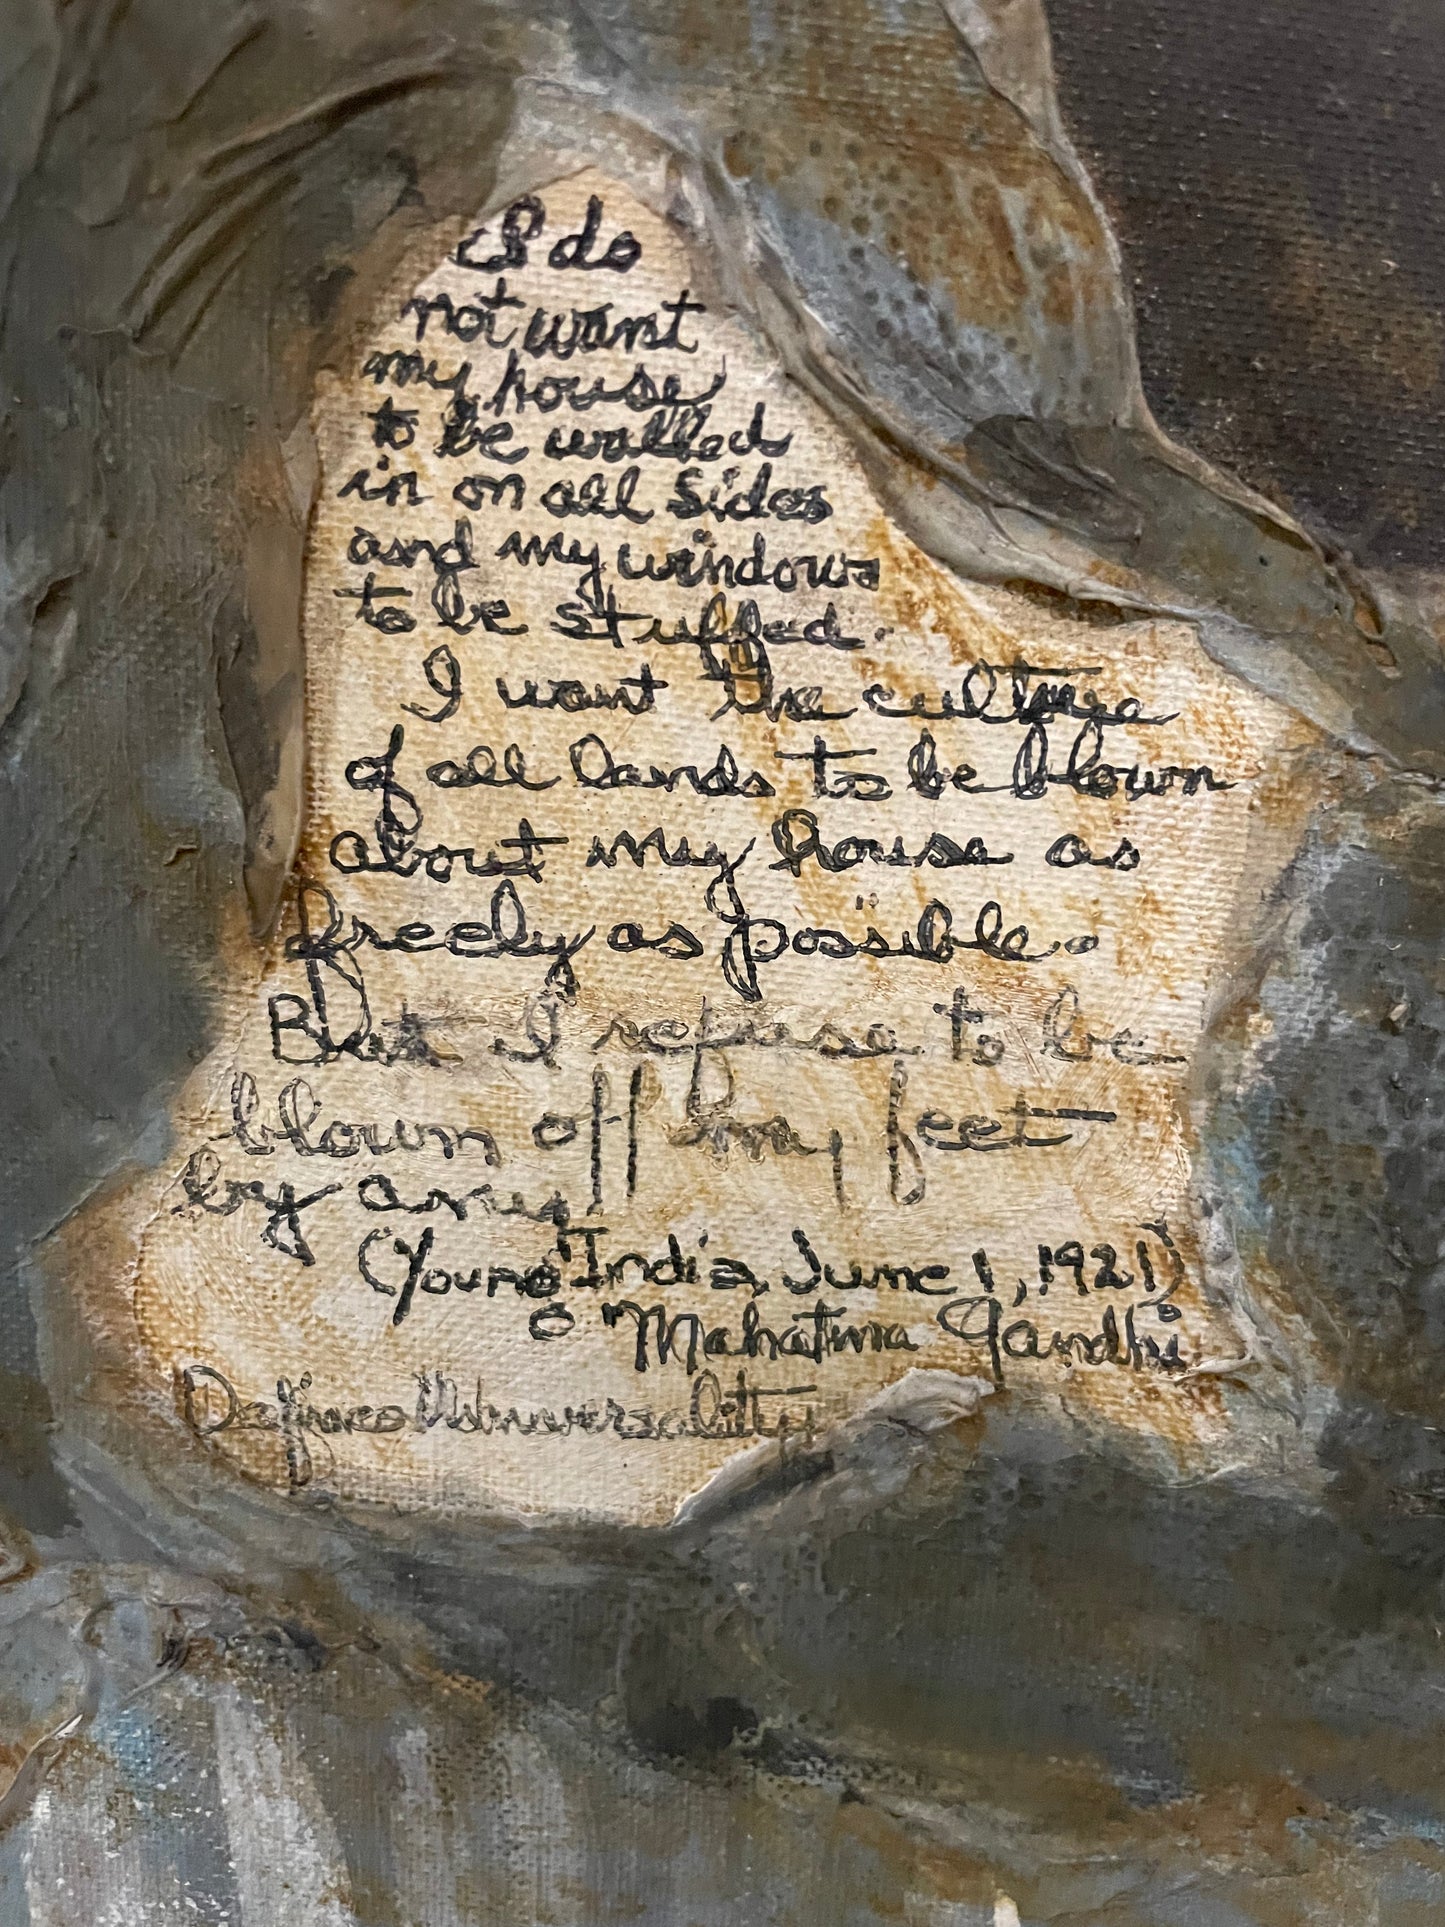 I do
not want
my house
to be walled
in on all sides
and my windows
to be stuffed.
I want the culture
of all lands to be blown
about my house as
freely as possible.
But I refuse to be
blown off my feet
by any
(Young India, June 1, 1921)
Mahatma Gandhi
Defines Universality